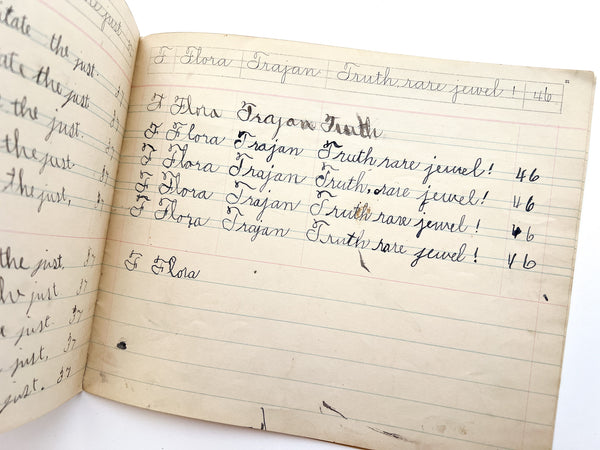 itate the just.
ate the just
the just.
the just
the just,
the just. 37
just 37
just. 37
just, 37
just. 37
F Flora Trajan Truth, rare jewel ! 46
F Flora Trajan Truth
F Flora Trajan Truth rare jewel! 46
F Flora Trajan Truth, rare jewel! 46
F Flora Trajan Truth rare jewel! 46
F Flora Trajan Truth rare jewel! 46
F Flora